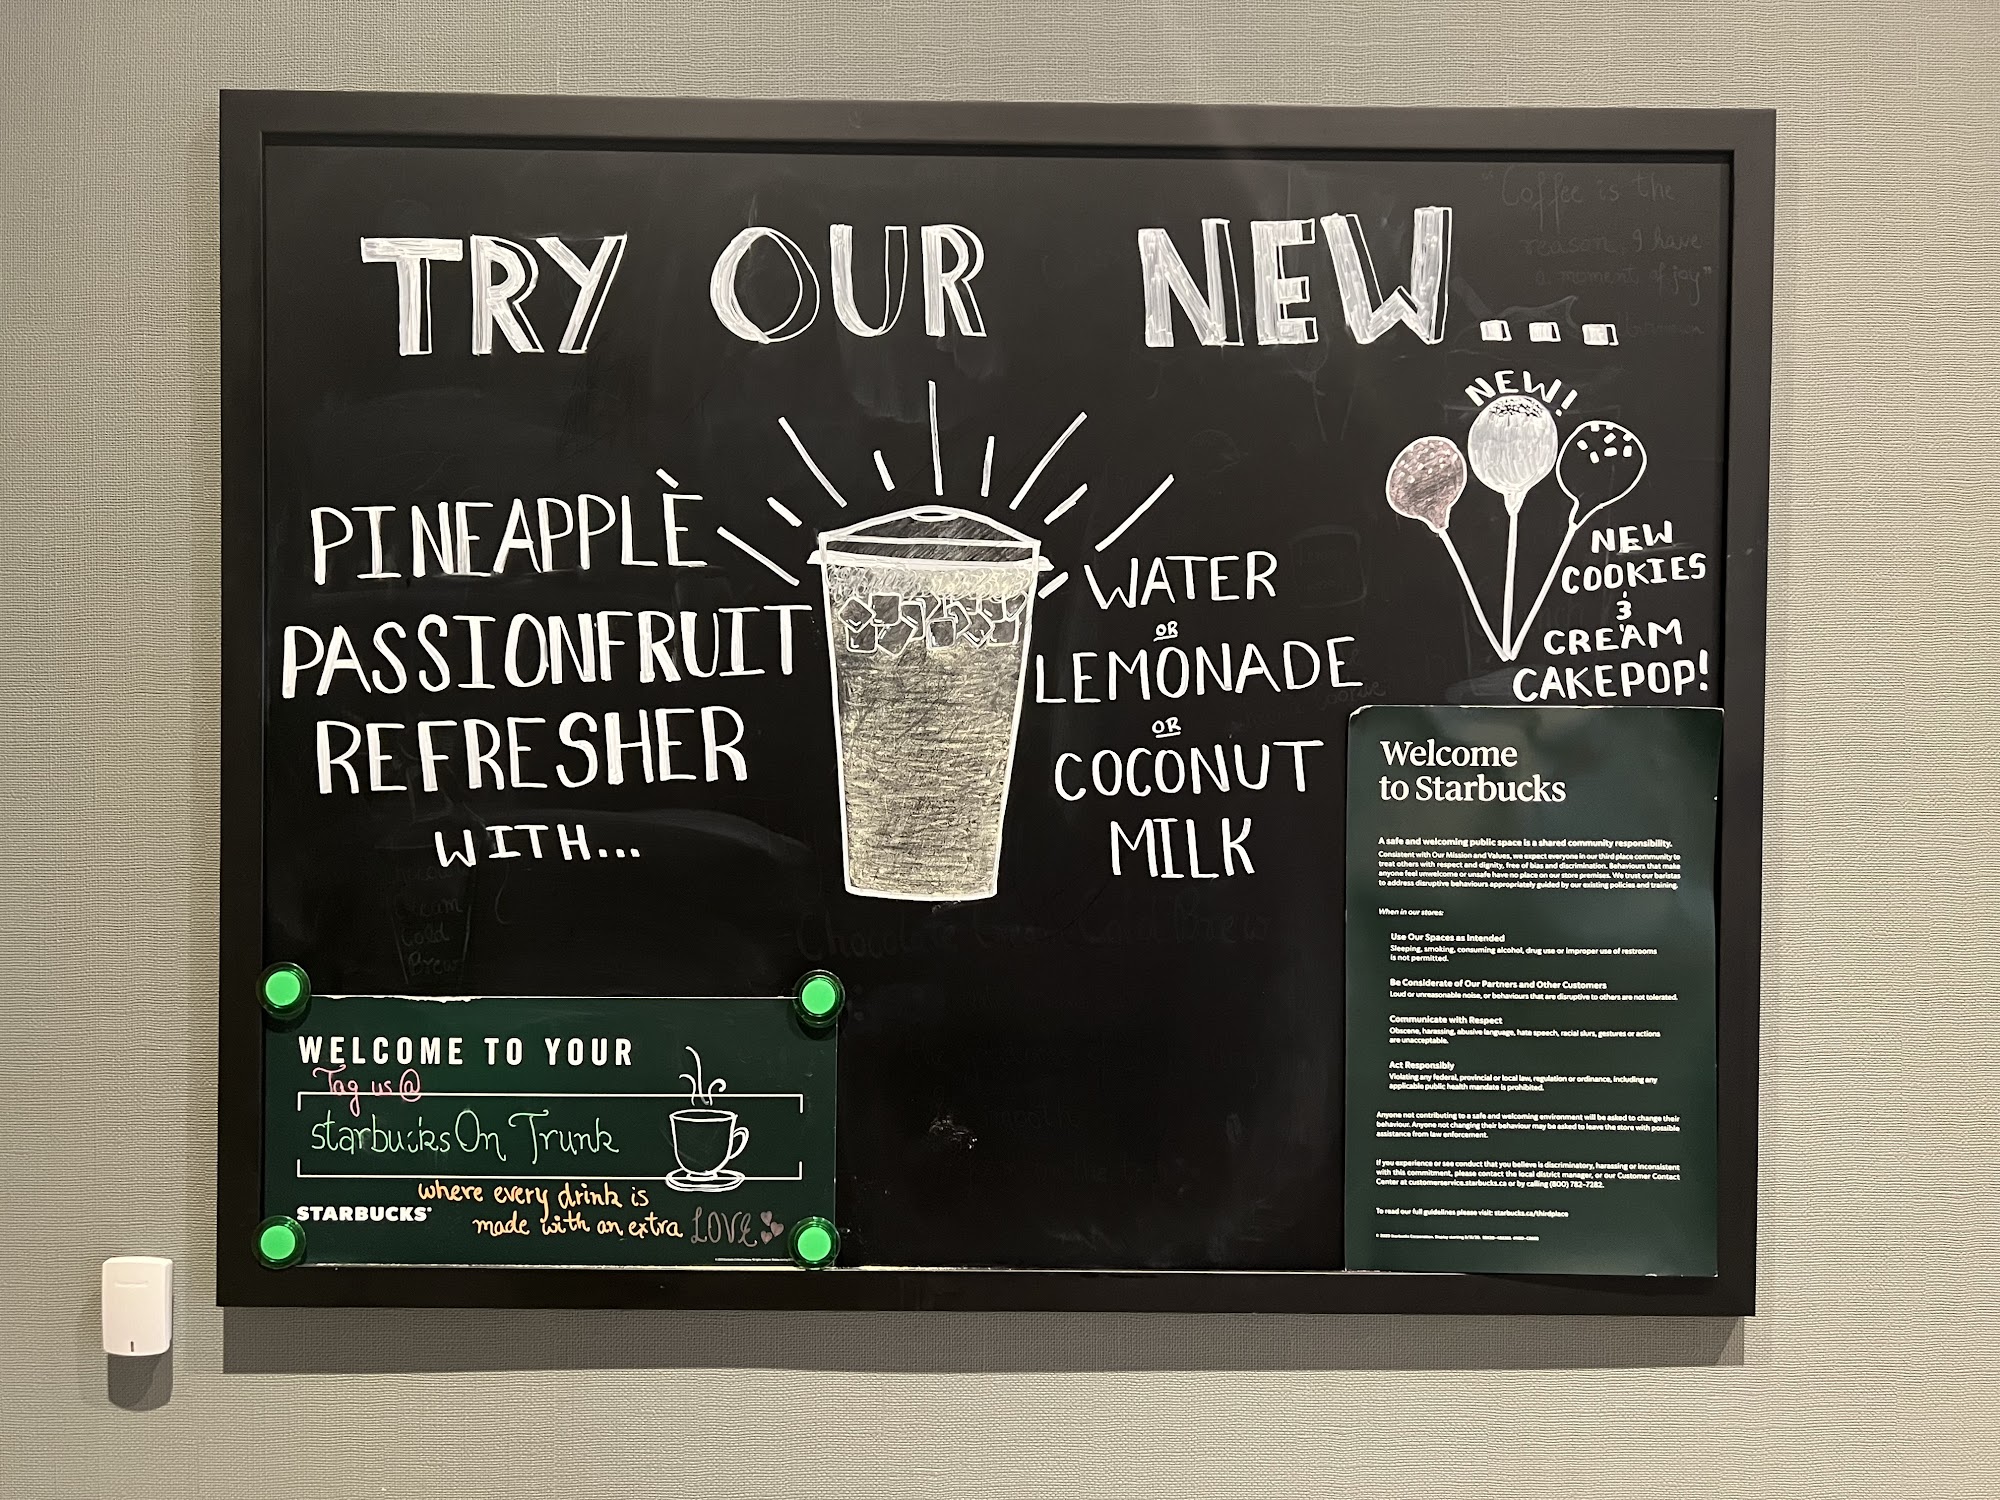 TRY OUR NEW...
"Coffee is the
reason, I have
a moment of joy"
PINEAPPLÈ
PASSIONFRUIT
REFRESHER
WITH...
WATER
OR
LEMONADE
OR
COCONUT
MILK
NEW!
NEW
COOKIES
&
CREAM
CAKEPOP!
Cream
Cold
Brew
Chocolate Cream Cold Brew
WELCOME TO YOUR
Tag us @
starbucksOnTrunk
where every drink is
made with an extra LOVE
STARBUCKS
Welcome
to Starbucks
A safe and welcoming public space is a shared community responsibility.
Consistent with Our Mission and Values, we expect everyone in our third place community to
treat others with respect and dignity, free of bias and discrimination. Behaviours that make
anyone feel unwelcome or unsafe have no place on our store premises. We trust our baristas
to address disruptive behaviours appropriately guided by our existing policies and training.
When in our stores:
Use Our Spaces as Intended
Sleeping, smoking, consuming alcohol, drug use or improper use of restrooms
is not permitted.
Be Considerate of Our Partners and Other Customers
Loud or unreasonable noise, or behaviours that are disruptive to others are not tolerated.
Communicate with Respect
Obscene, harassing, abusive language, hate speech, racial slurs, gestures or actions
are unacceptable.
Act Responsibly
Violating any federal, provincial or local law, regulation or ordinance, including any
applicable public health mandate is prohibited.
Anyone not contributing to a safe and welcoming environment will be asked to change their
behaviour. Anyone not changing their behaviour may be asked to leave the store with possible
assistance from law enforcement.
If you experience or see conduct that you believe is discriminatory, harassing or inconsistent
with this commitment, please contact the local district manager, or our Customer Contact
Center at customerservice.starbucks.ca or by calling (800) 782-7282.
To read our full guidelines please visit: starbucks.ca/thirdplace